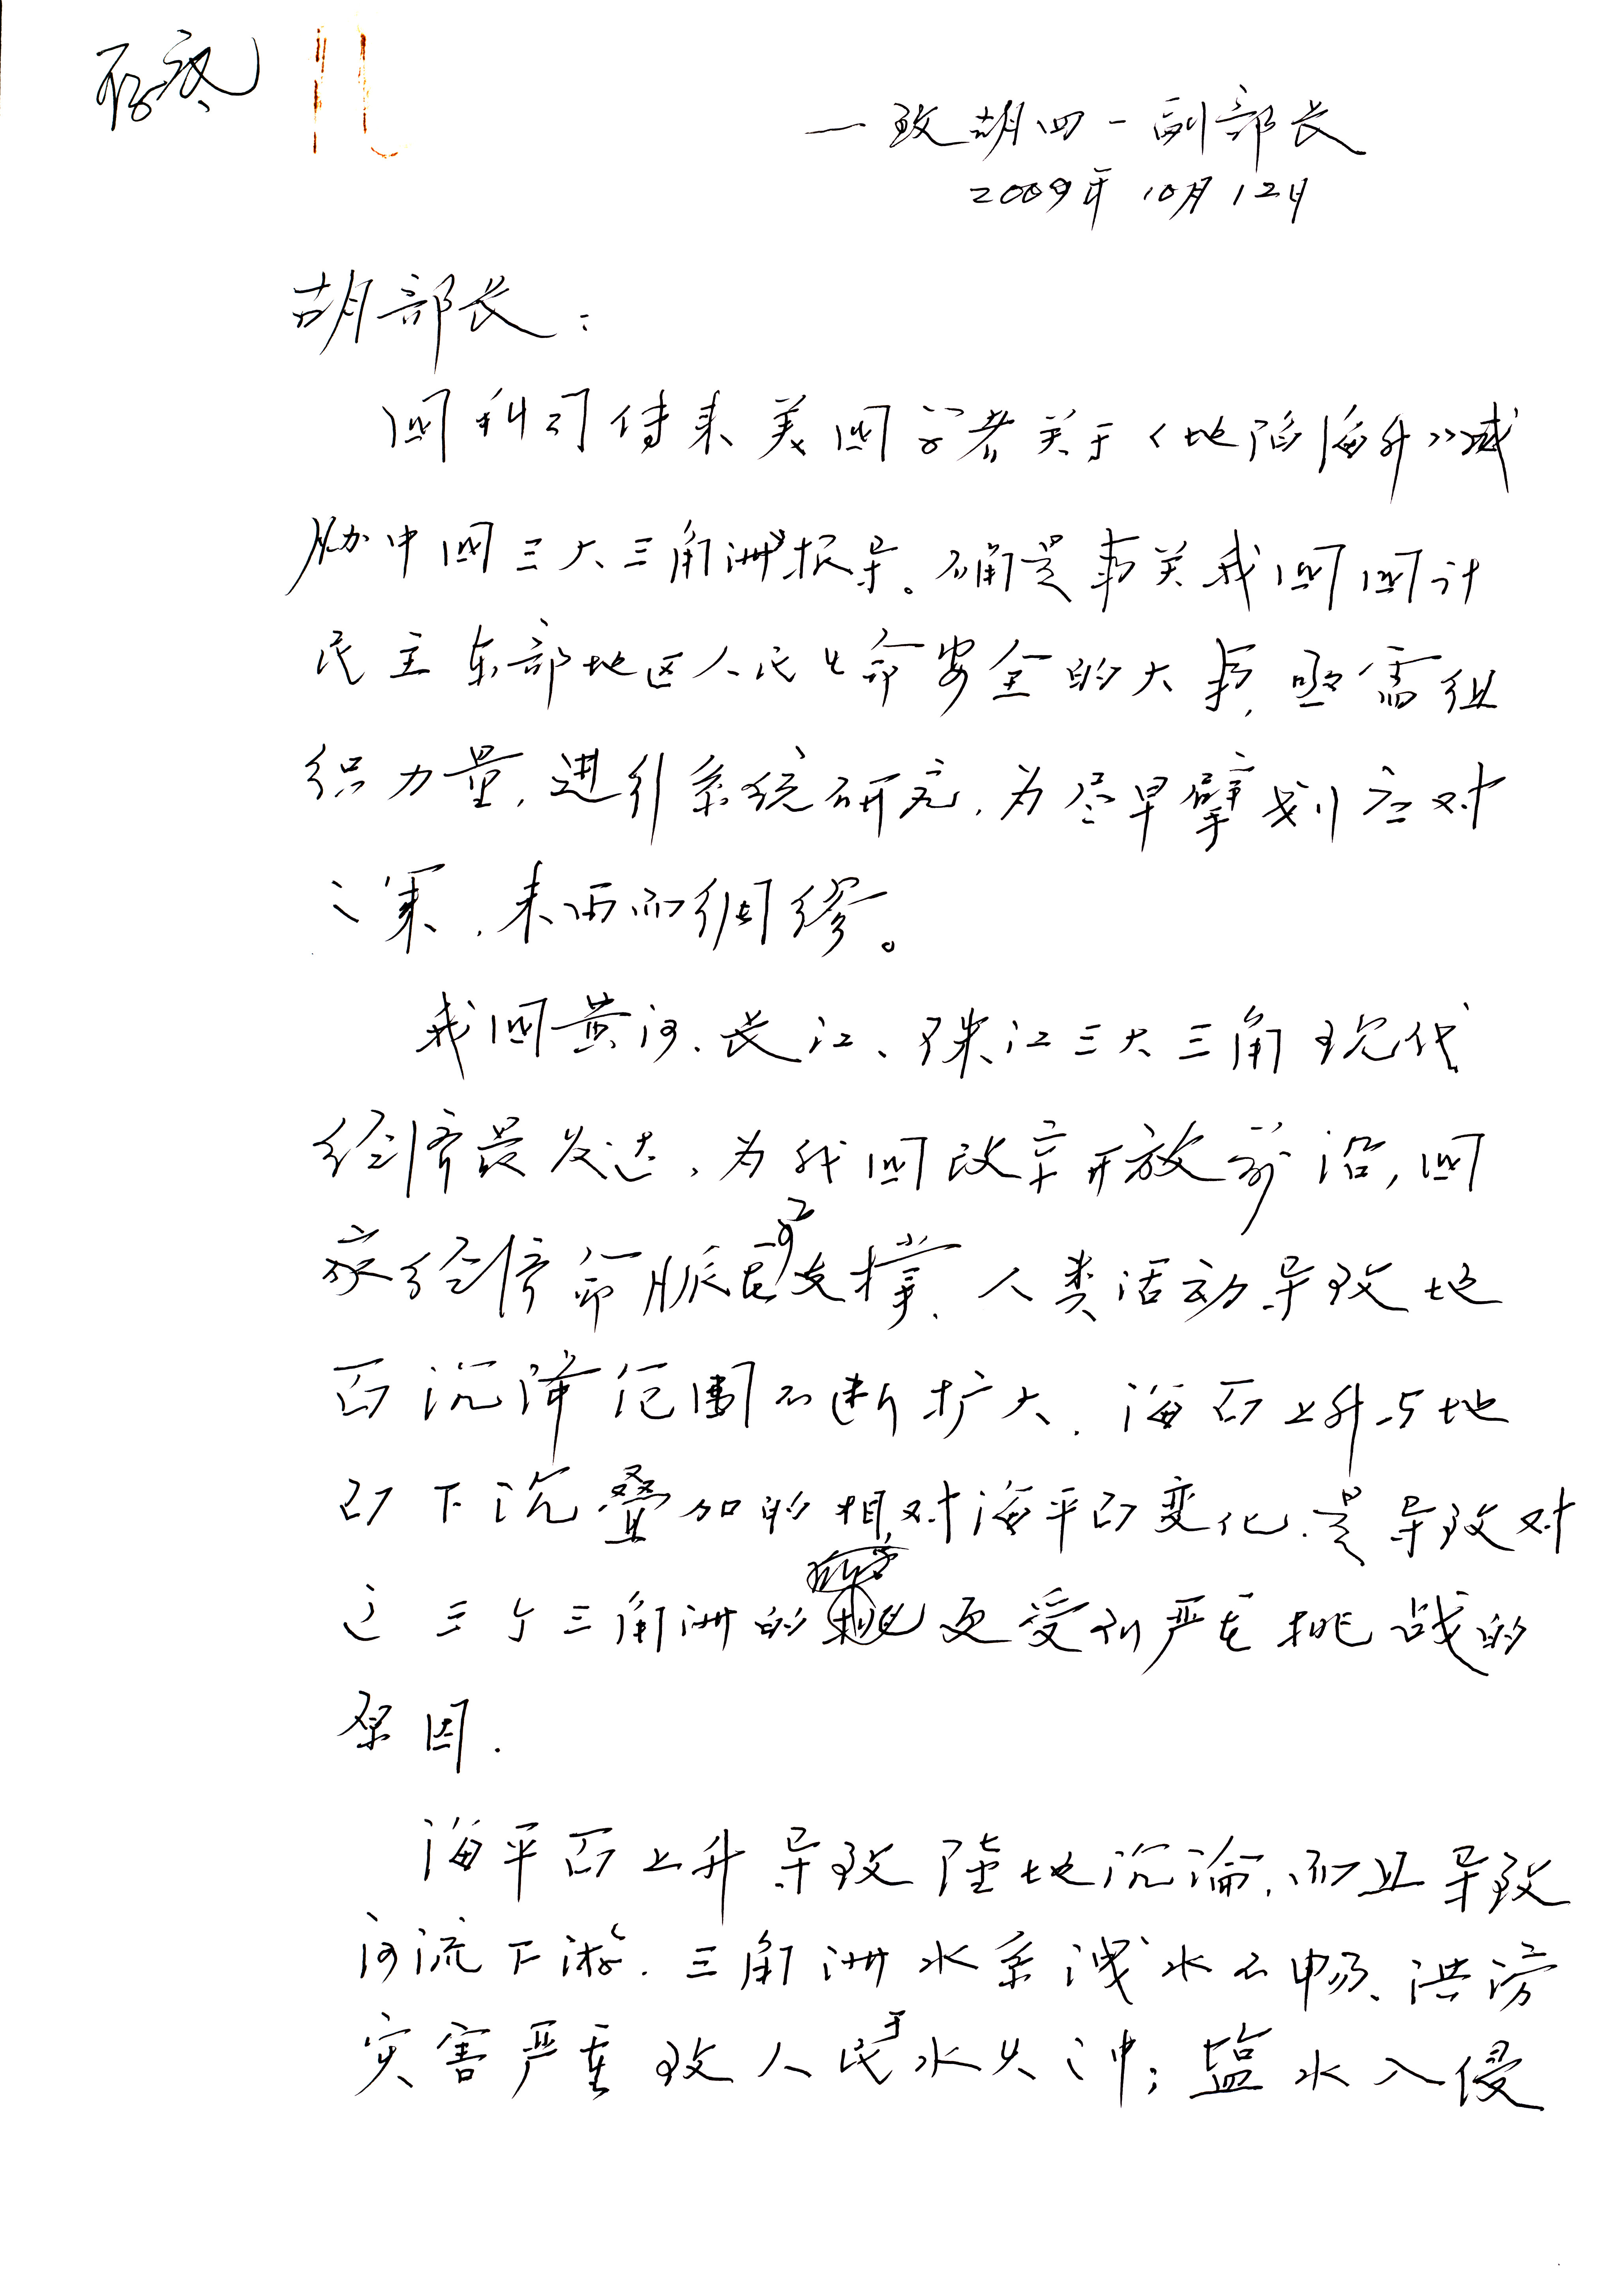 存底
一致胡四一副部长
2009年10月12日
胡部长：
国科司传来美国学者关于《地陷海升》威
胁中国三大三角洲报导。确是事关我国国计
民生东部地区人民生命安全的大事，亟需组
织力量，进行系统研究，为尽早擘划应对
之策，未雨而绸缪。
我国黄河、长江、珠江三大三角现代
经济最发达，为我国改革开放前沿，国
家经济命脉重要支撑，人类活动导致地
面沉降范围不断扩大，海面上升与地
面下沉叠加的相对海平面变化，是导致对
这三个三角洲的更受到严重挑战的
原因.
海平面上升导致陆地沉沦，而且导致
河流下游，三角洲水系洩水不畅、洪涝
灾害严重致人民于水火之中；盐水入侵